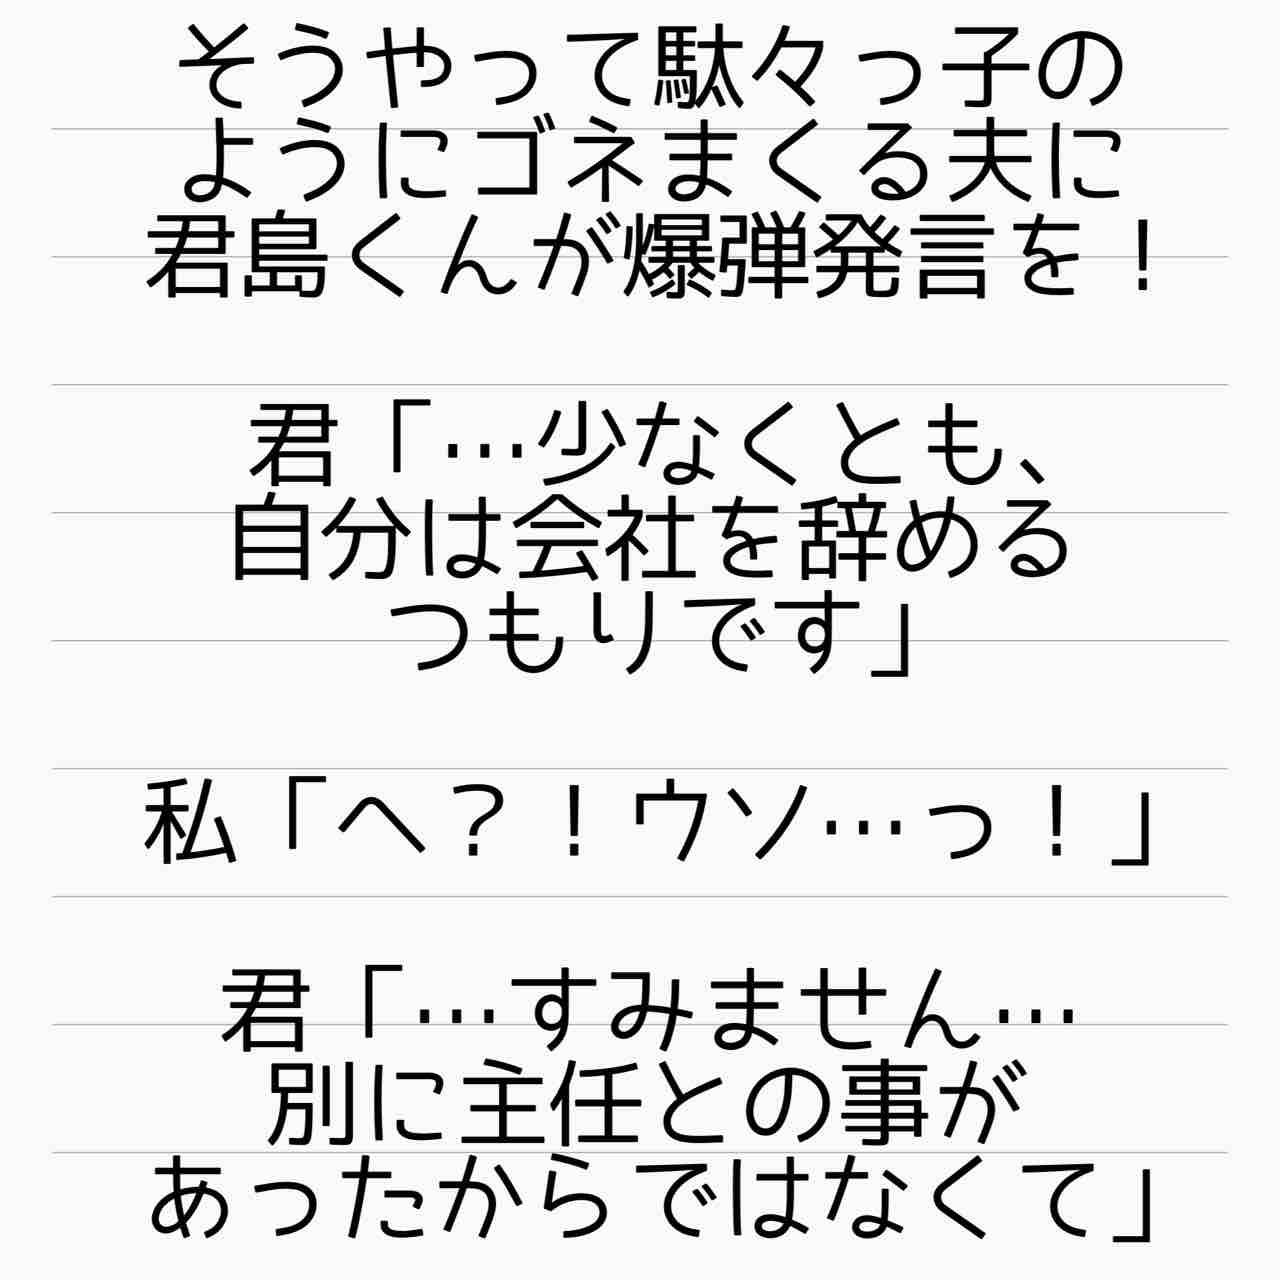 そうやって駄々っ子の
ようにゴネまくる夫に
君島くんが爆弾発言を！
君「…少なくとも、
自分は会社を辞める
つもりです」
私「へ？！ウソ…っ！」
君「…すみません…
別に主任との事が
あったからではなくて」